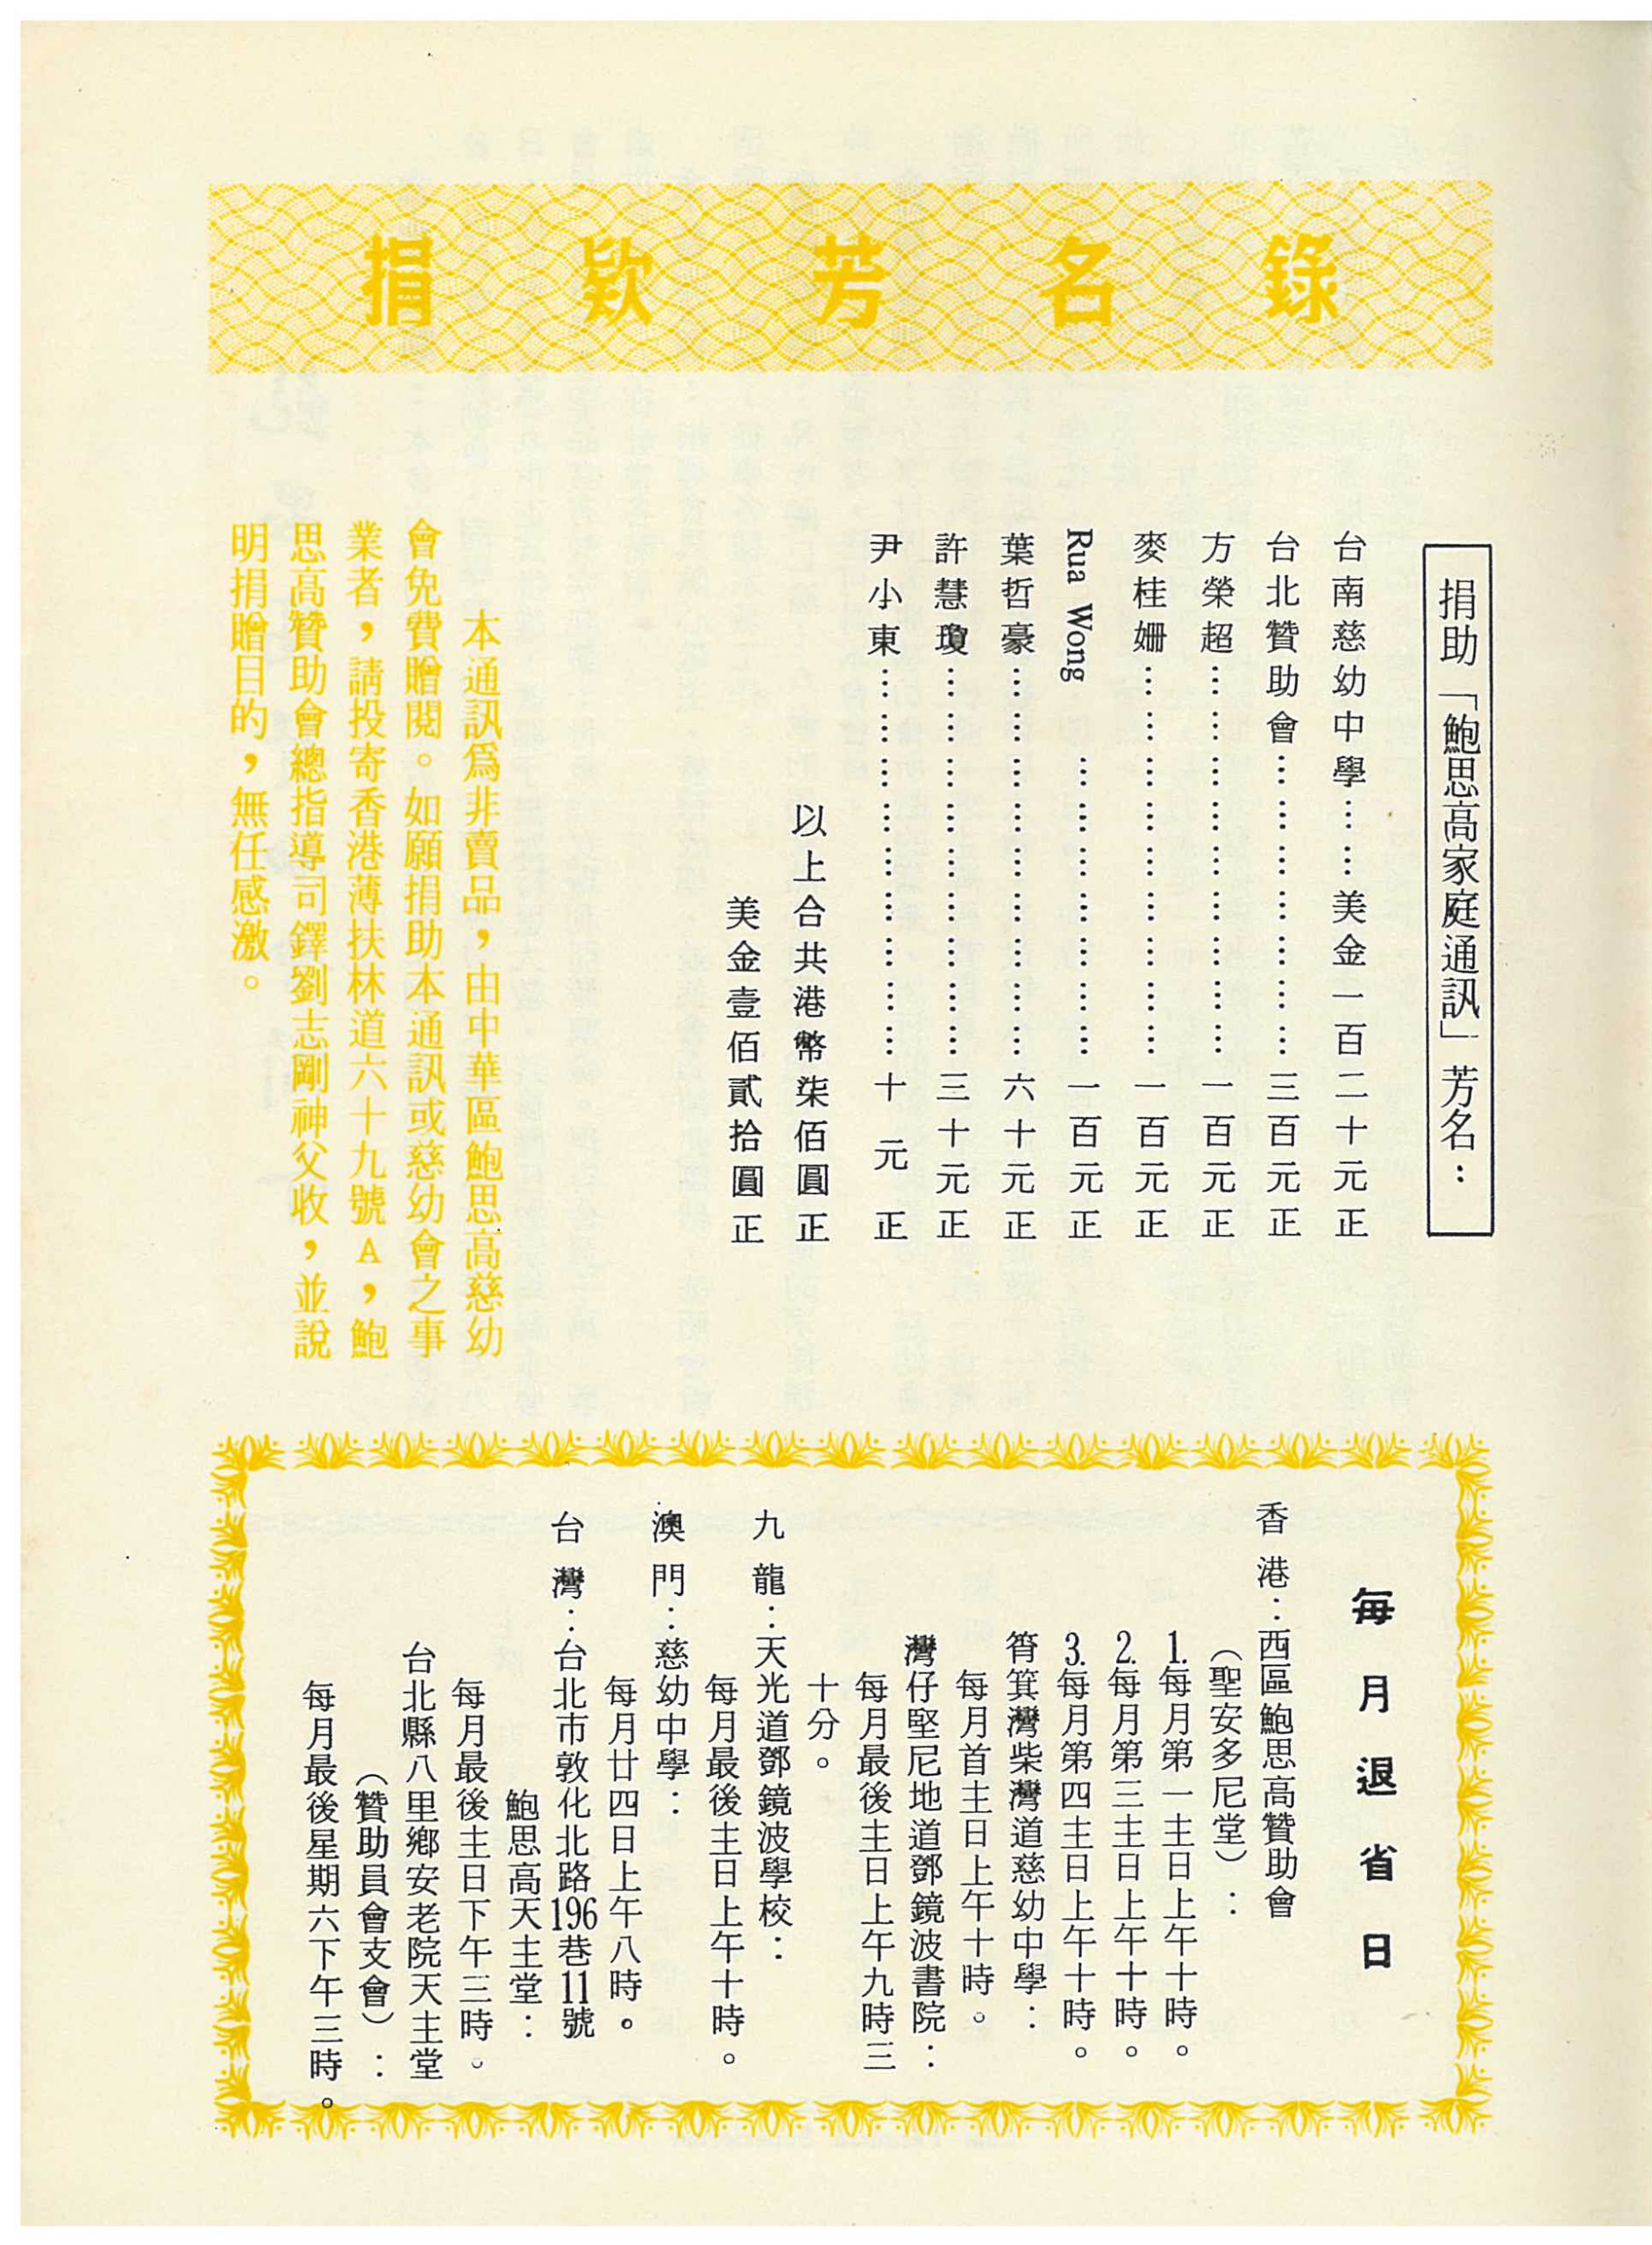 捐欵芳名錄
捐助「鮑思高家庭通訊」芳名：
台南慈幼中學……美金一百二十元正
台北贊助會…………………三百元正
方榮超………………………一百元正
麥桂姍………………………一百元正
Rua Wong …………………一百元正
葉哲豪………………………六十元正
許慧瓊………………………三十元正
尹小東………………………十元正
以上合共港幣柒佰圓正
美金壹佰貳拾圓正
本通訊爲非賣品，由中華區鮑思高慈幼
會免費贈閱。如願捐助本通訊或慈幼會之事
業者，請投寄香港薄扶林道六十九號A，鮑
思高贊助會總指導司鐸劉志剛神父收，並說
明捐贈目的，無任感激。
每月退省日
香港：西區鮑思高贊助會
（聖安多尼堂）：
1.每月第一主日上午十時。
2.每月第三主日上午十時。
3.每月第四主日上午十時。
筲箕灣柴灣道慈幼中學：
每月首主日上午十時。
灣仔堅尼地道鄧鏡波書院：
每月最後主日上午九時三
十分。
九龍：天光道鄧鏡波學校：
每月最後主日上午十時。
澳門：慈幼中學：
每月廿四日上午八時。
台灣：台北市敦化北路196巷11號
鮑思高天主堂：
每月最後主日下午三時。
台北縣八里鄉安老院天主堂
（贊助員會支會）：
每月最後星期六下午三時。